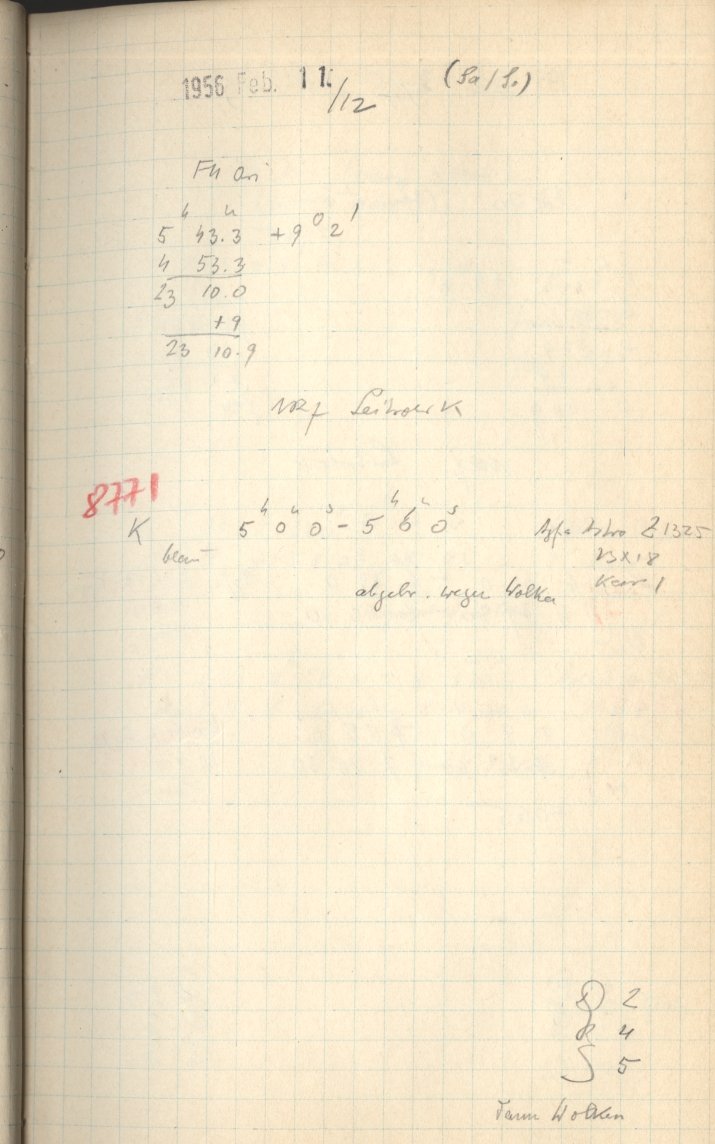 1956 Feb. 11./12 (Sa/So)
FU Ori
5 h 43.3 m +9° 2'
4 53.3
23 10.0
+9
23 10.9
8771
K 5 h 0 m 0 s - 5 h 6 m 0 s Agfa Astro Z 1325
blau 13x18
abgebr. wegen Wolken Karr 1
D 2
R 4
S 5
dann Wolken